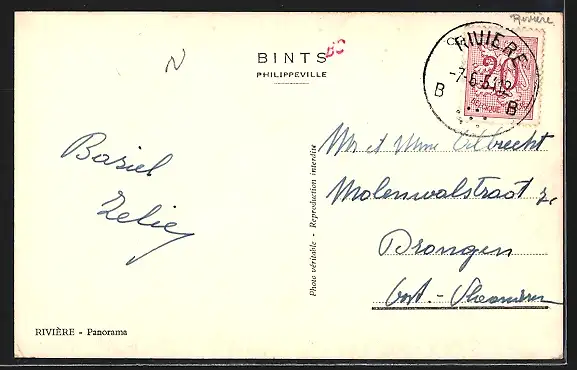 Rivière
N
BINTS
PHILIPPEVILLE
RIVIERE
-7-6-61 12
B B
20
BELGIQUE
Baziel
Zelie
Photo véritable - Reproduction interdite
Mr et Mme Delbrecht
Molenwalstraat 7,
Drongen
Oost.-Vlaanderen
RIVIÈRE - Panorama